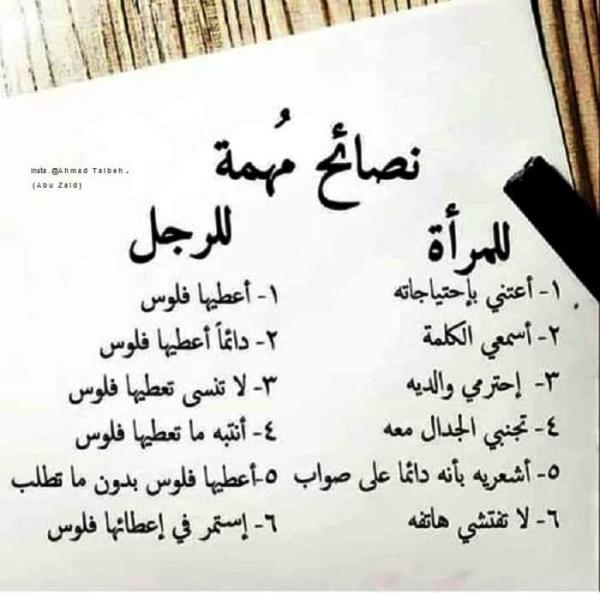 نصائح مُهمة
insta.@Ahmad Taibeh.
(Abu Zaid)
للمرأة
١- أعتني بإحتياجاته
٢- أسمعي الكلمة
٣- إحترمي والديه
٤- تجنبي الجدال معه
٥- أشعريه بأنه دائما على صواب
٦- لا تفتشي هاتفه
للرجل
١- أعطيها فلوس
٢- دائماً أعطيها فلوس
٣- لا تنسى تعطيها فلوس
٤- أنتبه ما تعطيها فلوس
٥-أعطيها فلوس بدون ما تطلب
٦- إستمر في إعطائها فلوس